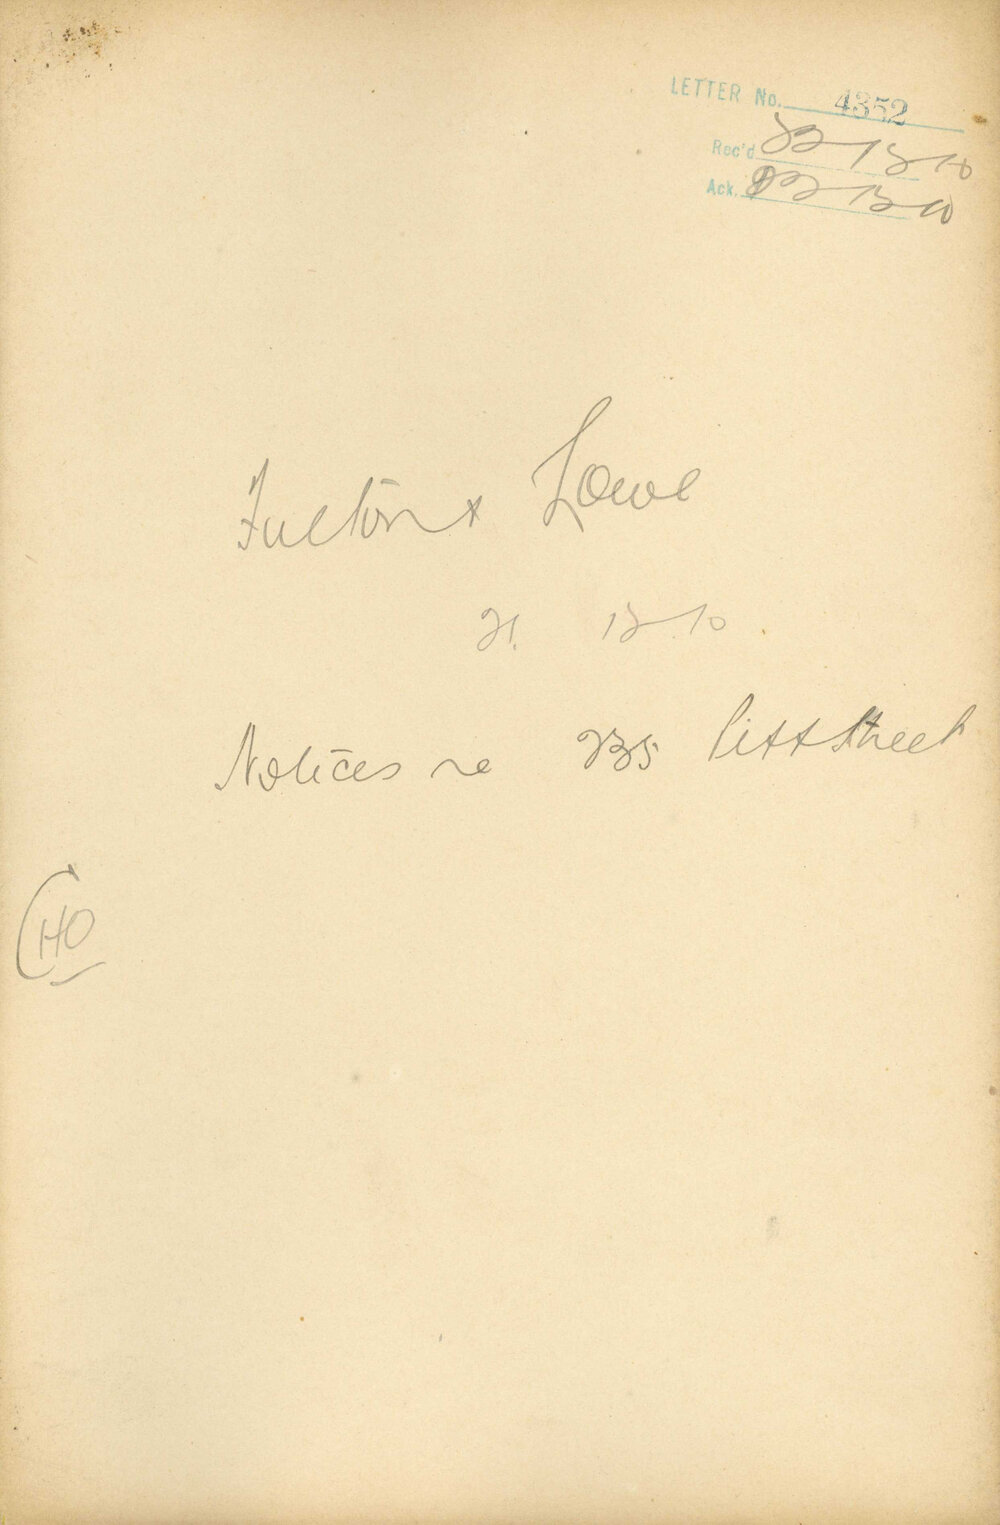 LETTER No. 4352
Rec'd 22-12-10
Ack. 22-12-10
Fulton & Lowe
21. 12-10
Notices re 235 Pitt Street
HO